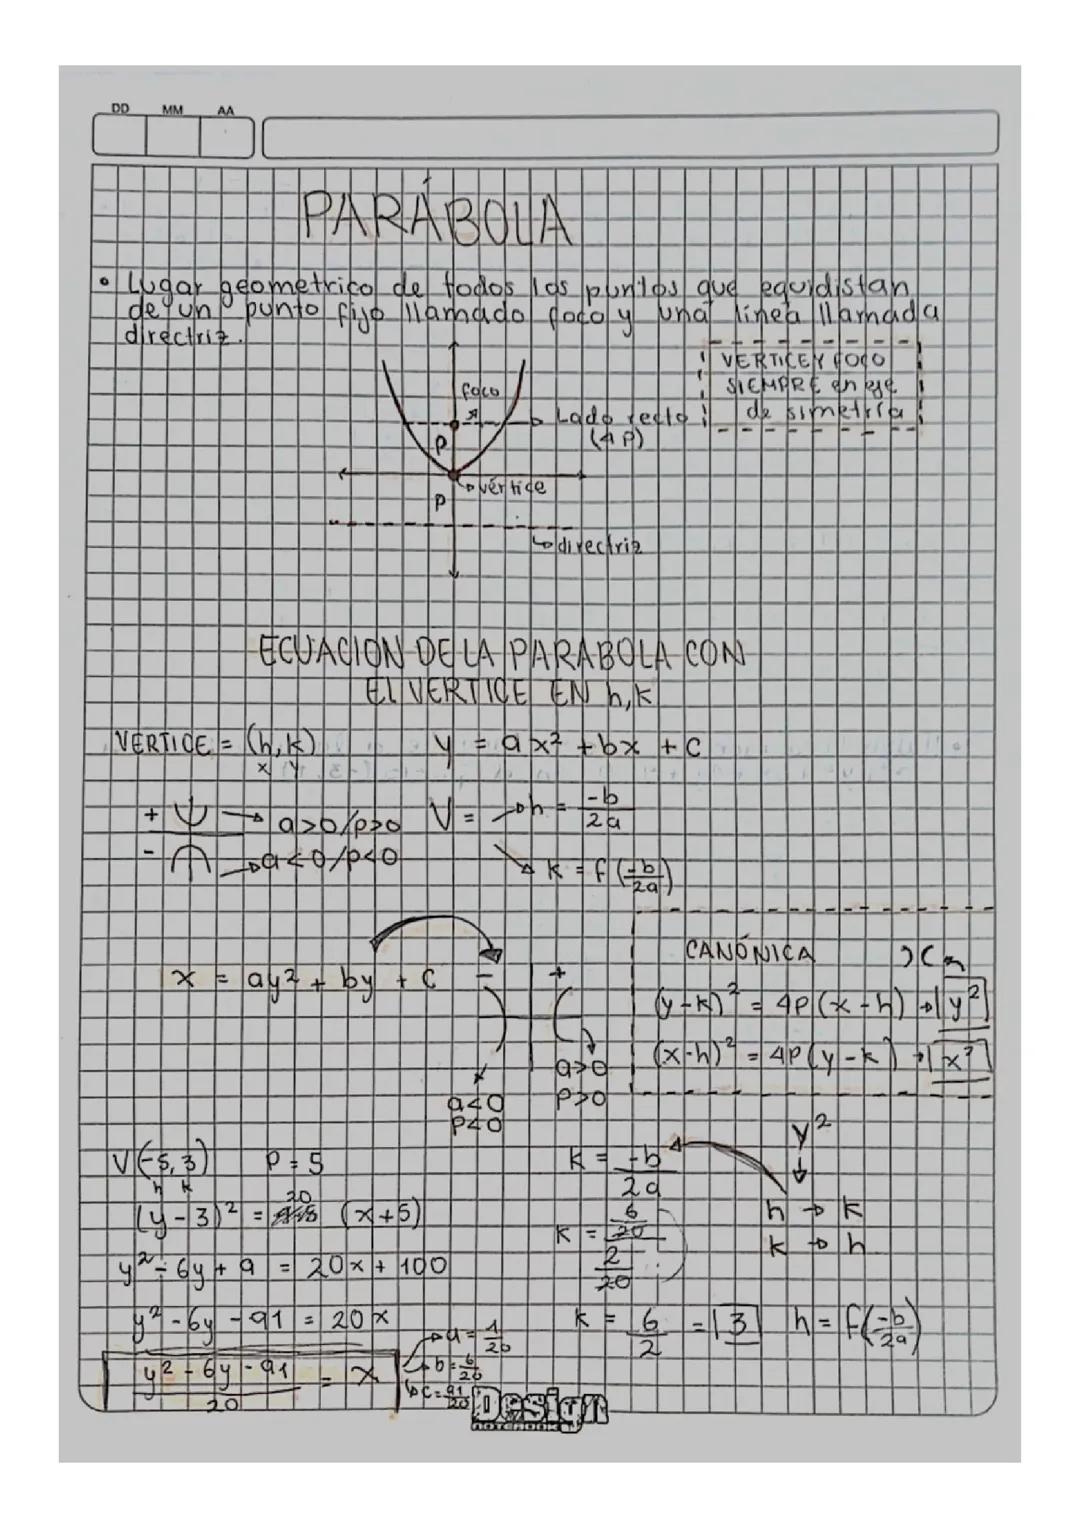 DD MM AA
PARÁBOLA
• Lugar geometrico de todos los puntos que equidistan
de un punto fijo llamado foco y una linea llamada
directriz.
VERTICE Y FOCO
SIEMPRE en eje
de simetría
foco
Lado recto
(4P)
P
vértice
P
directriz
ECUACION DE LA PARABOLA CON
El VERTICE EN h,k
VERTICE = (h,k) y = ax² + bx + c
x y
+ → a>0/p>0 V = → h = -b/2a
- → a<0/p<0
→ k = f(-b/2a)
x = ay² + by + c - +
a<0
p<0
a>0
P>0
CANÓNICA
(y-k)² = 4P(x-h) → y²
(x-h)² = 4P(y-k) → x²
V(-5,3) P = 5
h k
(y-3)² = 20 (x+5)
y² - 6y + 9 = 20x + 100
y² - 6y - 91 = 20x
y² - 6y - 91 / 20 = x
a = 1/20
b = 6/20
c = 91/20
k = -b/2a
k = 6/20 / 2/20
k = 6/2 = 3
y²
↓
h → k
k → h
h = f(-b/2a)
Design
NOTEBOOK